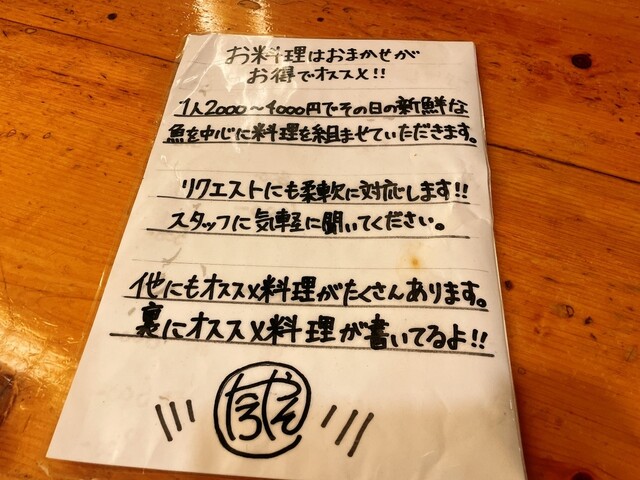 お料理はおまかせが
お得でオススメ!!
1人2000〜4000円でその日の新鮮な
魚を中心に料理を組ませていただきます。
リクエストにも柔軟に対応します!!
スタッフに気軽に聞いてください。
他にもオススメ料理がたくさんあります。
裏にオススメ料理が書いてるよ!!